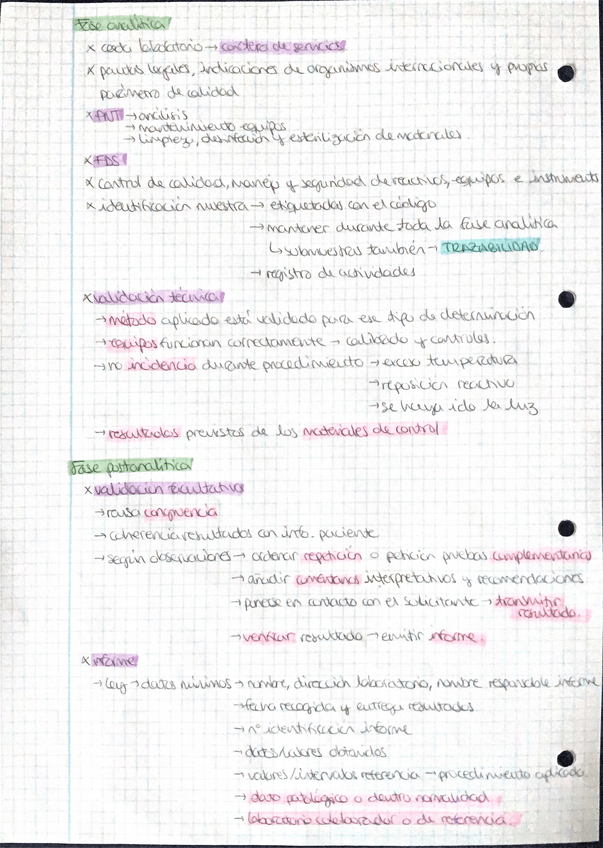 Fase analítica
x cada laboratorio → cartera de servicios
x pautas legales, indicaciones de organismos internacionales y propios
parámetro de calidad
x PNT → análisis
→ mantenimiento equipos
→ limpieza, desinfección y esterilización de materiales.
x FDS
x control de calidad, manejo y seguridad de reactivos, equipos e instruments
x identificación muestra → etiquetadas con el código
→ mantener durante toda la fase analítica
↳ submuestras también → TRAZABILIDAD
→ registro de actividades
x validación técnica
→ método aplicado está validado para ese tipo de determinación
→ equipos funcionan correctamente → calibrado y controles.
→ no incidencia durante procedimiento → exceso temperatura
→ reposición reactivo
→ se haya ido la luz
→ resultados previstos de los materiales de control
Fase postanalítica
x validación facultativa
→ revisa congruencia
→ coherencia resultados con info. paciente
→ según observaciones → ordenar repetición o petición pruebas complementarias
→ añadir comentarios interpretativos y recomendaciones
→ ponerse en contacto con el solicitante → transmitir
resultado.
→ verificar resultado → emitir informe.
x informe
→ Ley → datos mínimos → nombre, dirección laboratorio, nombre responsable informe
→ fecha recogida y entrega resultados
→ nº identificación informe
→ datos/valores obtenidos
→ valores/intervalos referencia → procedimiento aplicado
→ dato patológico o dentro normalidad.
→ laboratorio colaborador o de referencia.